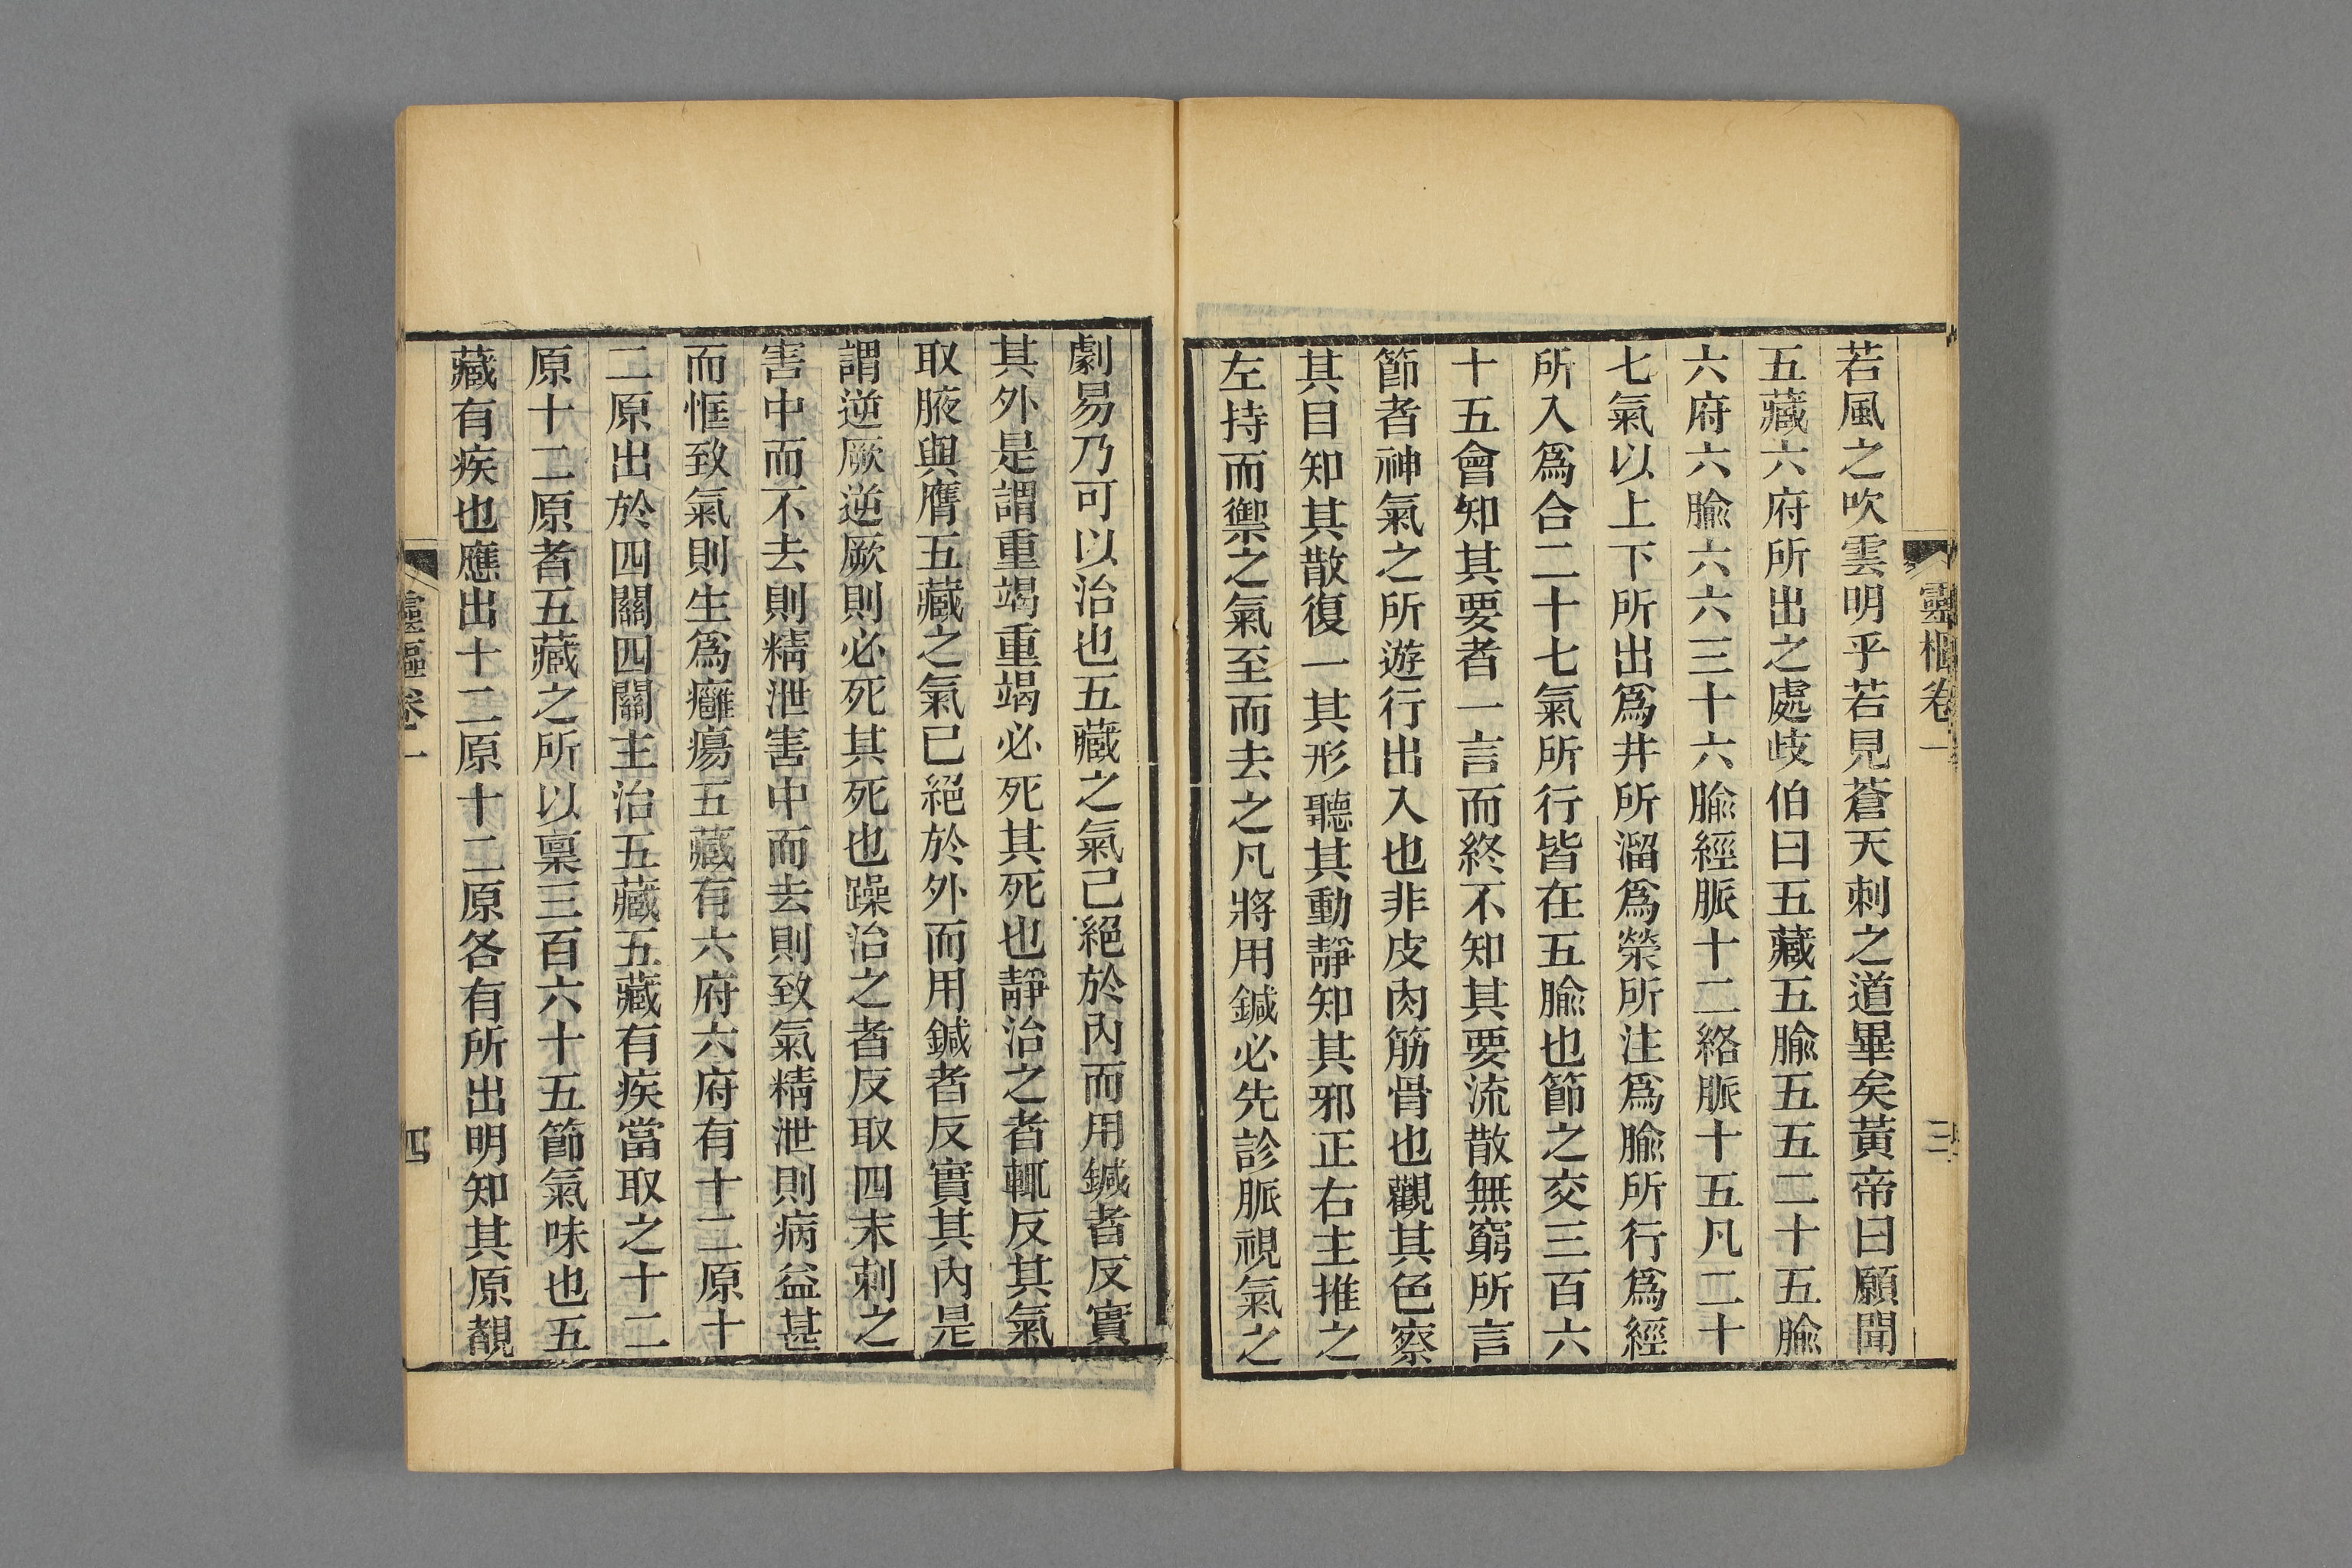 靈樞卷一
三
若風之吹雲明乎若見蒼天刺之道畢矣黃帝曰願聞
五藏六府所出之處歧伯曰五藏五腧五五二十五腧
六府六腧六六三十六腧經脈十二絡脈十五凡二十
七氣以上下所出爲井所溜爲滎所注爲腧所行爲經
所入爲合二十七氣所行皆在五腧也節之交三百六
十五會知其要者一言而終不知其要流散無窮所言
節者神氣之所遊行出入也非皮肉筋骨也觀其色察
其目知其散復一其形聽其動靜知其邪正右主推之
左持而禦之氣至而去之凡將用鍼必先診脈視氣之
劇易乃可以治也五藏之氣已絕於內而用鍼者反實
其外是謂重竭重竭必死其死也靜治之者輒反其氣
取腋與膺五藏之氣已絕於外而用鍼者反實其內是
謂逆厥逆厥則必死其死也躁治之者反取四末刺之
害中而不去則精泄害中而去則致氣精泄則病益甚
而恇致氣則生爲癰瘍五藏有六府六府有十二原十
二原出於四關四關主治五藏五藏有疾當取之十二
原十二原者五藏之所以稟三百六十五節氣味也五
藏有疾也應出十二原十二原各有所出明知其原覩
靈樞卷一
四